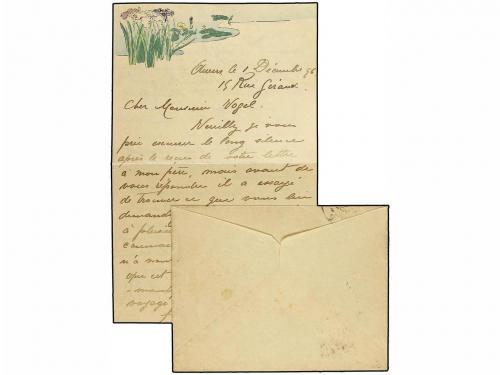 Anvers le 1 Décembre 96
15 Rue Géraux.
Cher Monsieur Vogel.
Veuillez je vous
prie excuser le long silence
après le reçu de votre lettre
à mon père, mais avant de
vous répondre il a essayé
de trouver ce que vous lui
demand
à
n'a
que cet
voyag